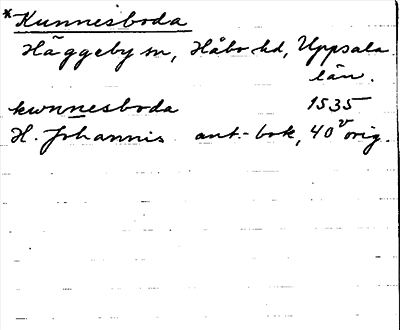 *Kunnesboda
Häggeby sn, Håbo hd, Uppsala
län.
kwnnesboda 1535
H. Johannis ant.-bok, 40v orig.